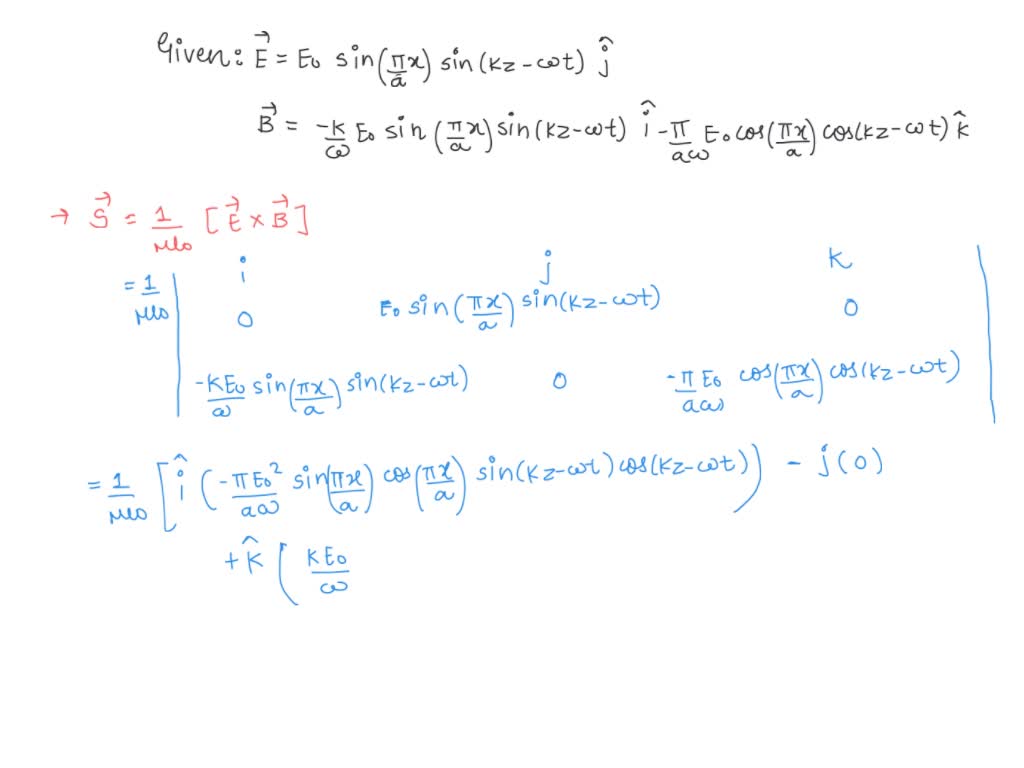 Given: E⃗ = E₀ sin(πx/a) sin(kz-ωt) ĵ
B⃗ = -k/ω E₀ sin(πx/a) sin(kz-ωt) î - π/aω E₀ cos(πx/a) cos(kz-ωt) k̂
→ S⃗ = 1/μ₀ [E⃗ × B⃗]
= 1/μ₀ | i j k |
| 0 E₀ sin(πx/a) sin(kz-ωt) 0 |
| -kE₀/ω sin(πx/a) sin(kz-ωt) 0 -πE₀/aω cos(πx/a) cos(kz-ωt) |
= 1/μ₀ [î (-πE₀²/aω sin(πx/a) cos(πx/a) sin(kz-ωt) cos(kz-ωt)) - j(0)
+ k̂ (kE₀/ω